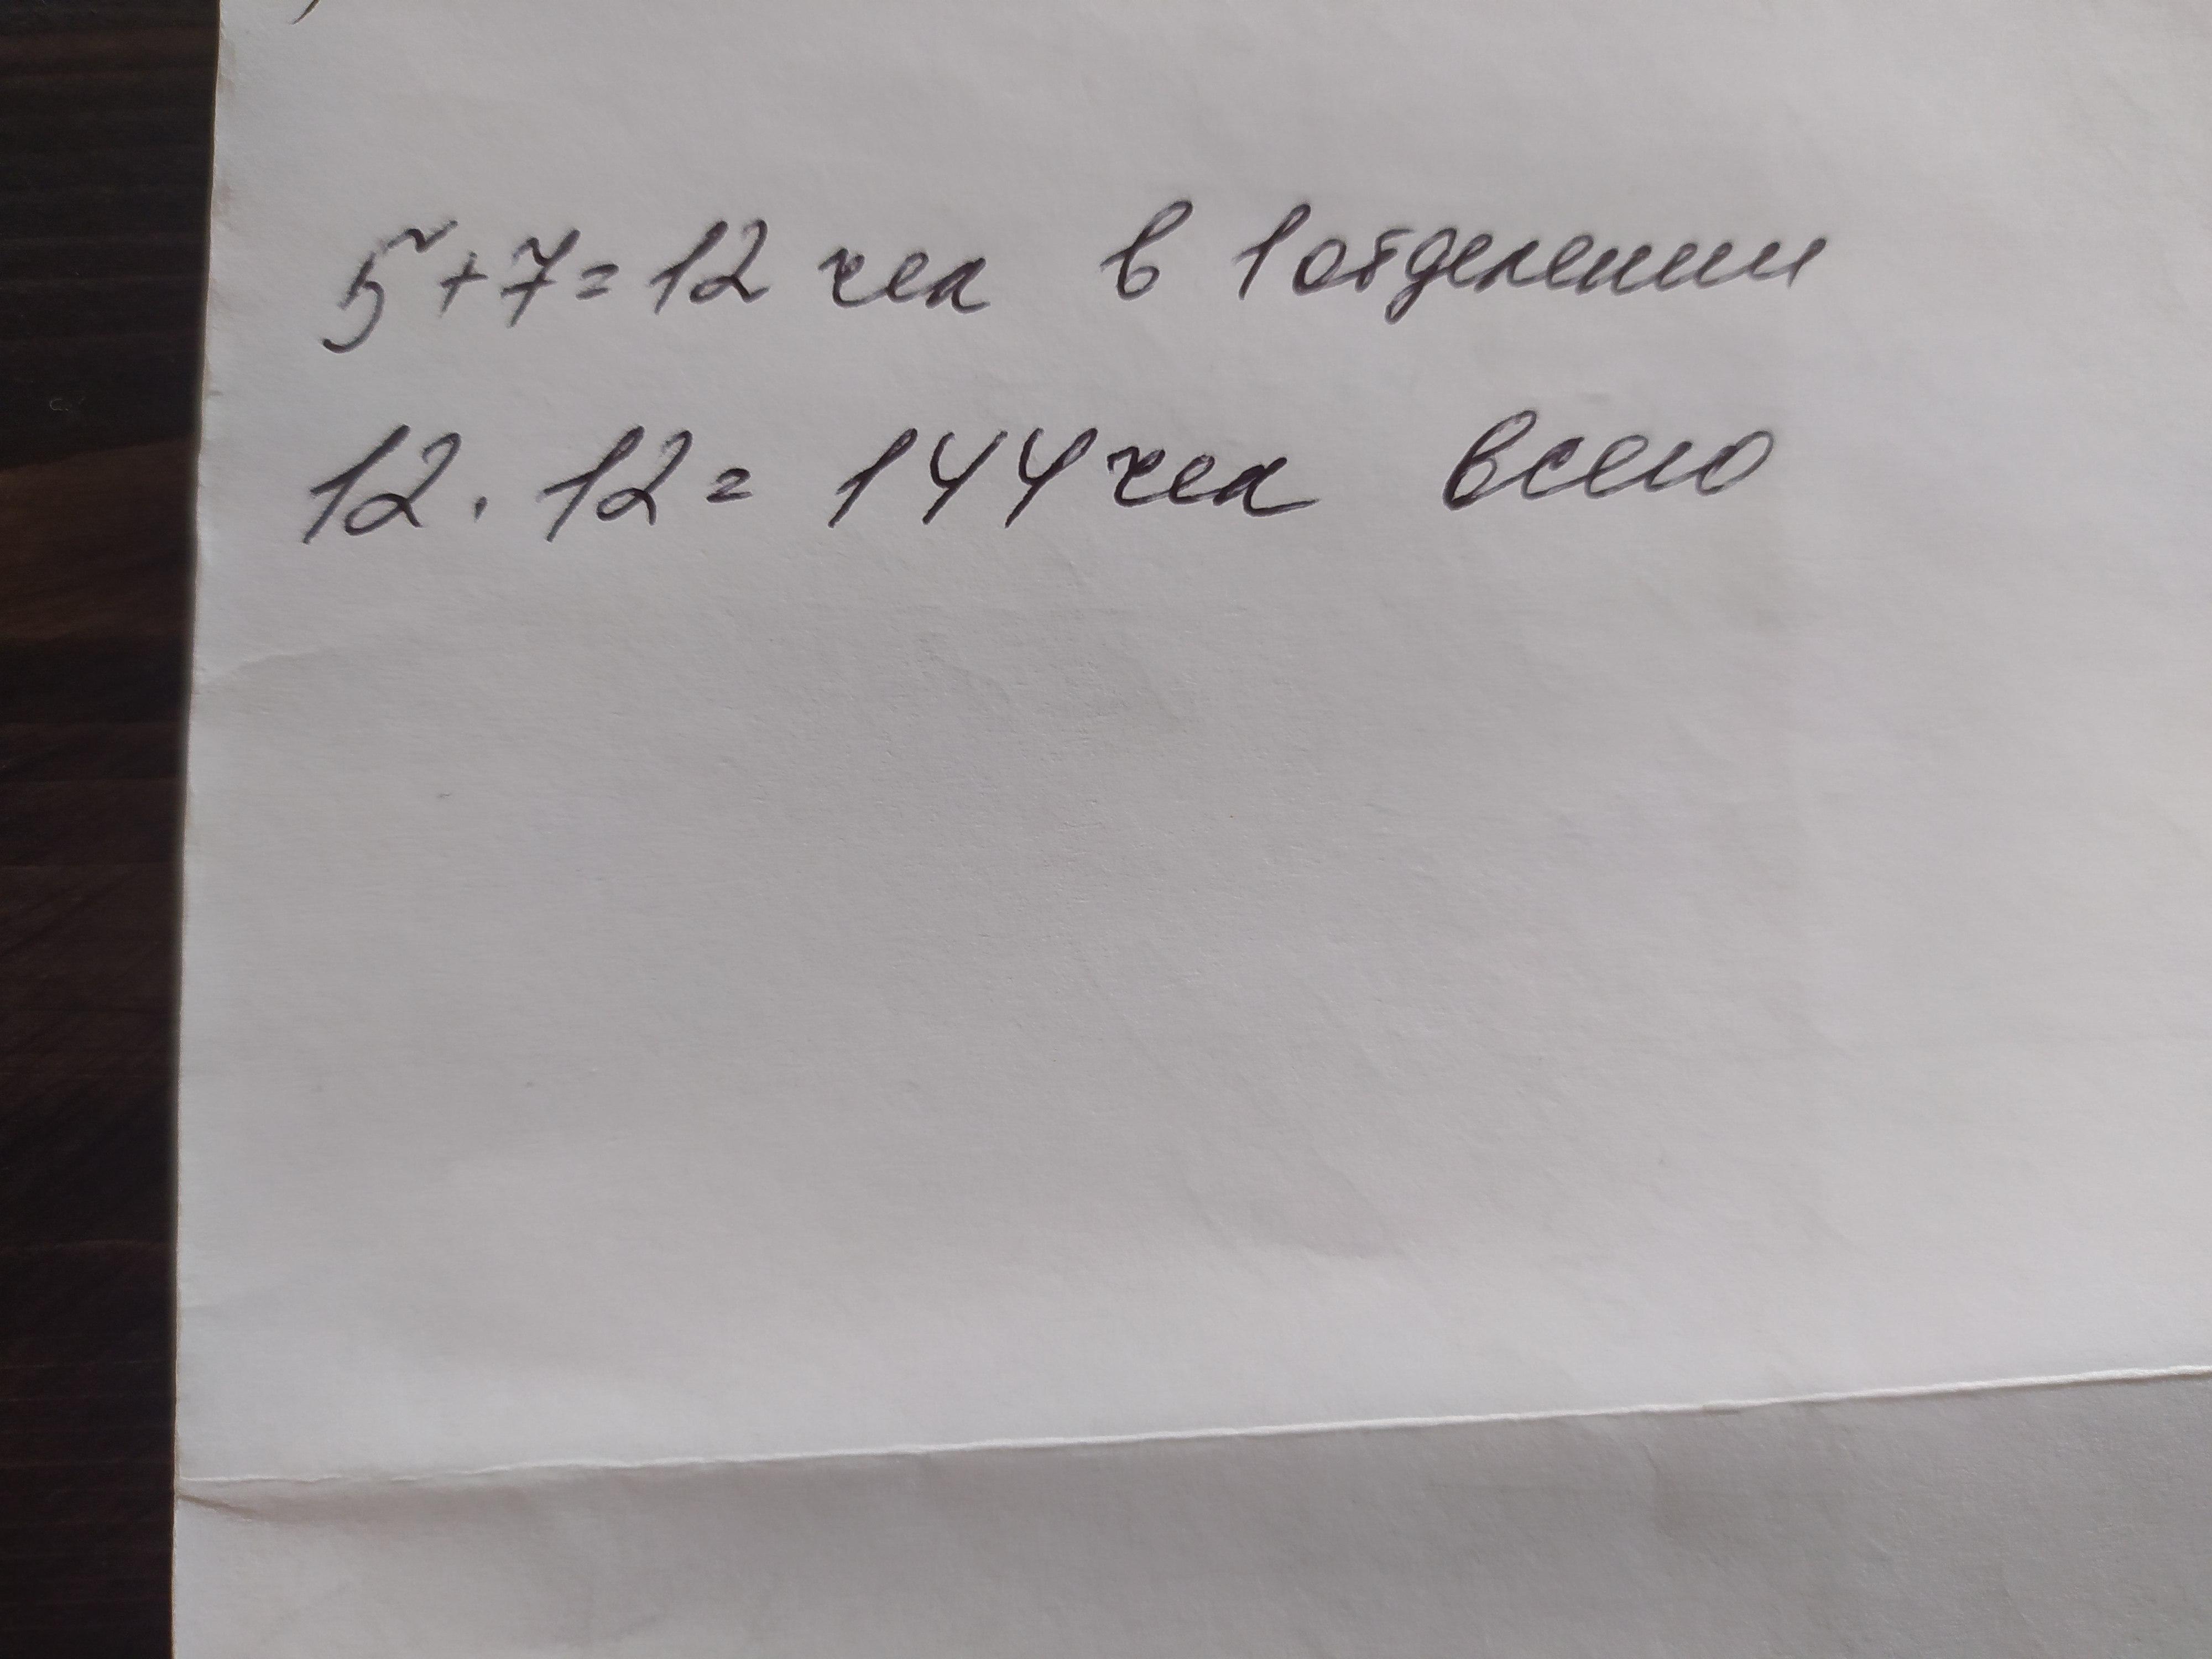 5+7=12 чел в 1 отделении
12 · 12 = 144 чел всего